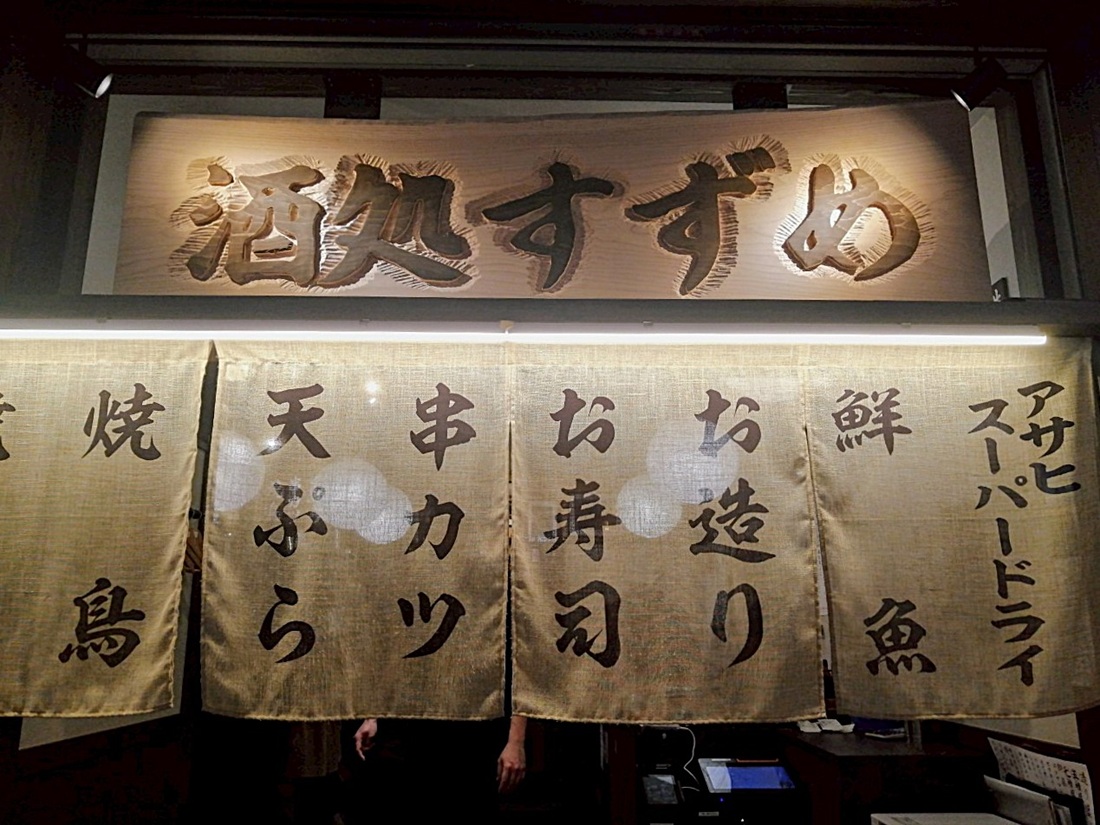 酒処すずめ
アサヒ
スーパードライ
鮮魚
お造り
お寿司
串カツ
天ぷら
焼鳥